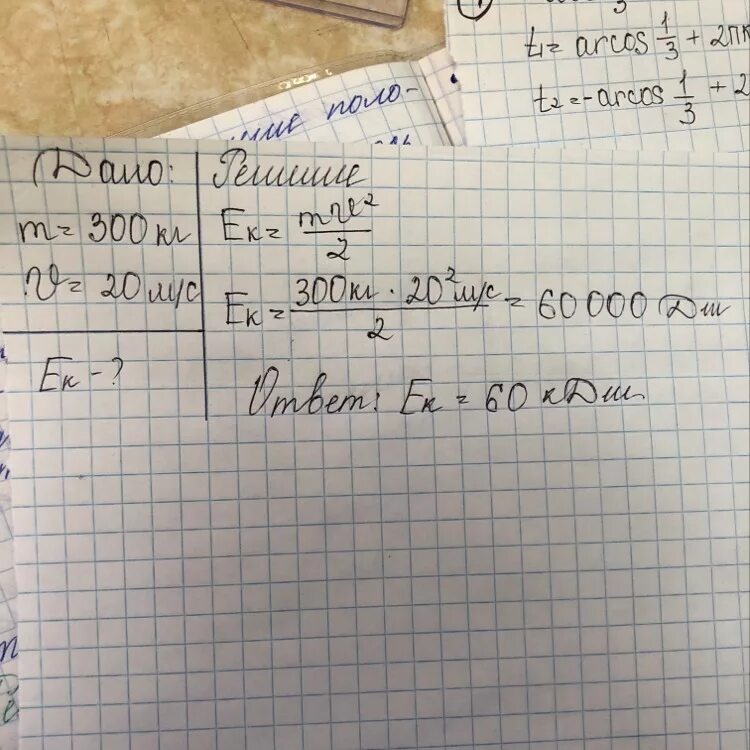 t₁ = arcos 1/3 + 2πk
t₂ = -arcos 1/3 + 2
поло-
Дано:
m = 300 кг
v = 20 м/с
Eк - ?
Решение
Eк = mv²/2
Eк = 300 кг · 20² м/с / 2 = 60 000 Дж
Ответ: Eк = 60 кДж.